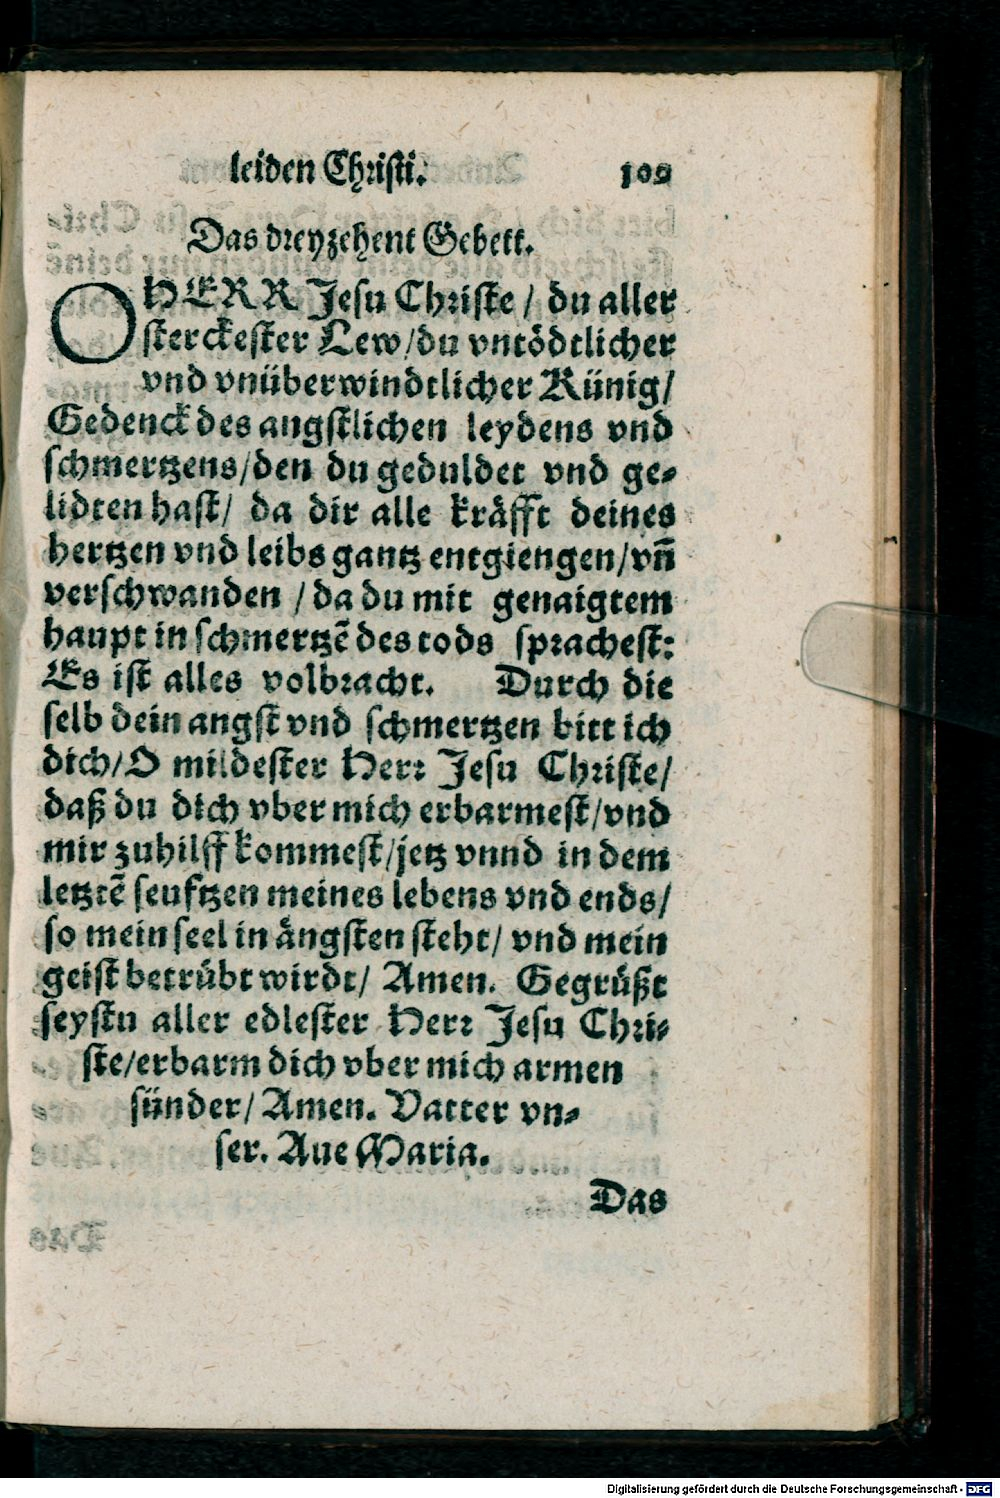 leiden Christi. 109
Das dreyzehent Gebett.
O HERR Jesu Christe / du aller
sterckester Lew/du vntödtlicher
vnd vnüberwindtlicher Künig/
Gedenck des angstlichen leydens vnd
schmertzens/den du geduldet vnd ge-
lidten hast/ da dir alle kräfft deines
hertzen vnd leibs gantz entgiengen/vñ
verschwanden / da du mit genaigtem
haupt in schmertzẽ des tods sprachest:
Es ist alles volbracht. Durch die
selb dein angst vnd schmertzen bitt ich
dich/O mildester Herr Jesu Christe/
daß du dich vber mich erbarmest/vnd
mir zuhilff kommest/jetz vnnd in dem
letztẽ seuftzen meines lebens vnd ends/
so mein seel in ängsten steht/ vnd mein
geist betrübt wirdt/ Amen. Gegrüßt
seystu aller edlester Herr Jesu Chri-
ste/erbarm dich vber mich armen
sünder/ Amen. Vatter vn-
ser. Aue Maria.
Das
Digitalisierung gefördert durch die Deutsche Forschungsgemeinschaft - DFG